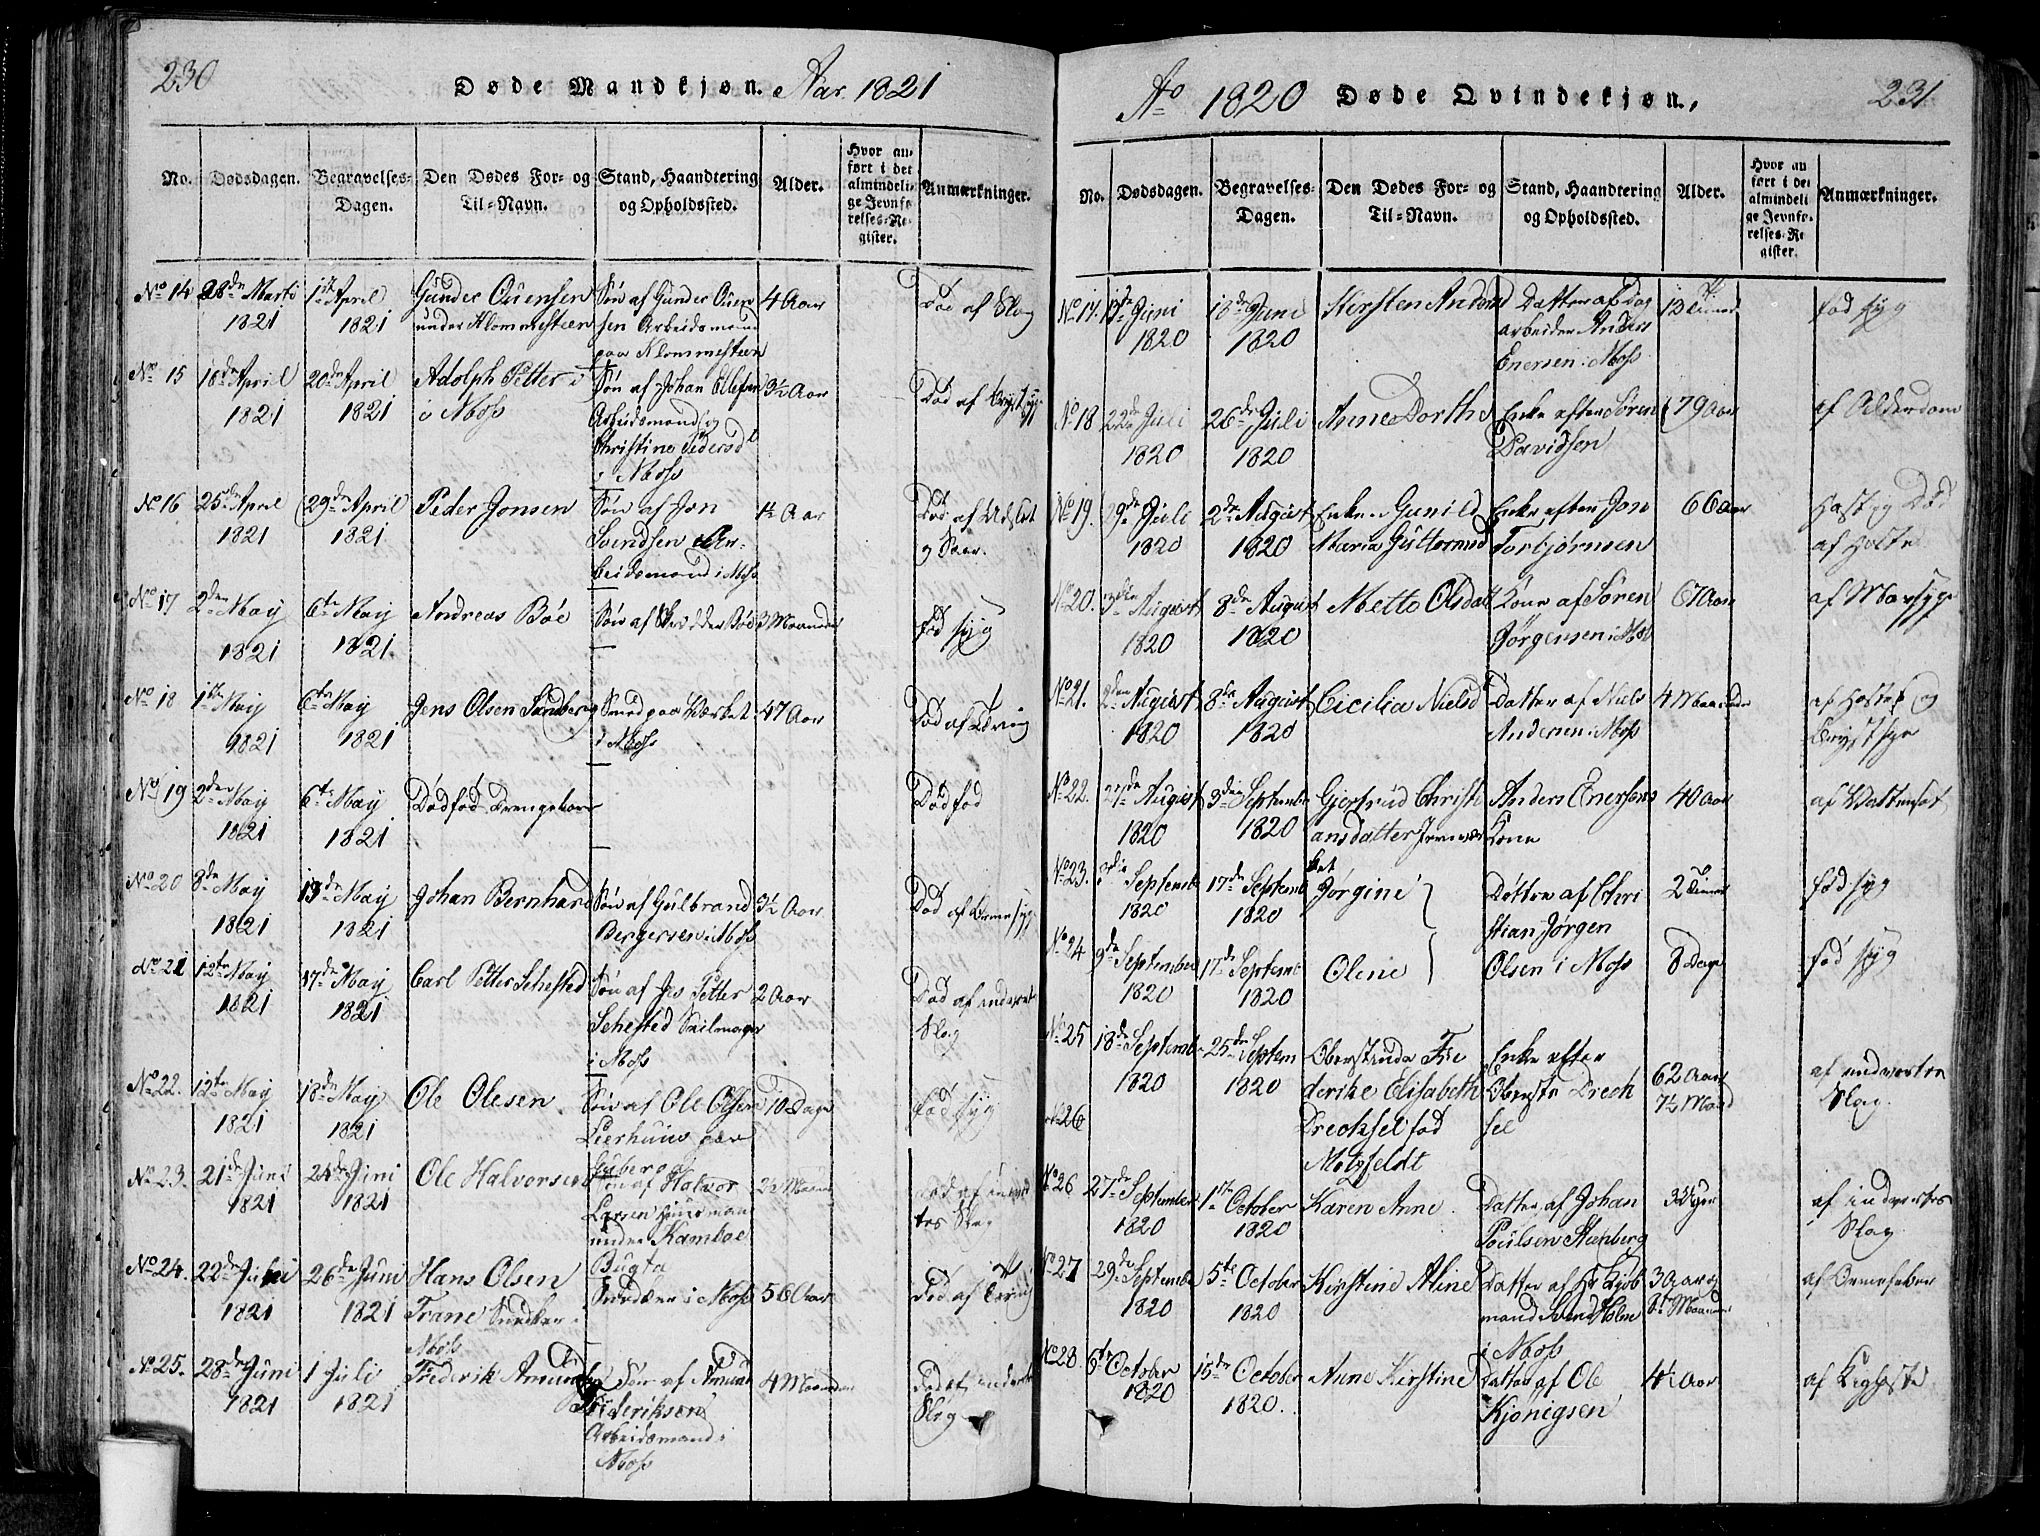 230
Døde Mandkjøn. Aar 1821
No.
Dødsdagen.
Begravelses-
Dagen.
Den Dødes For- og
Til-Navn.
Stand, Haandtering
og Opholdssted.
Alder.
Hvor an-
ført i det
almindeli-
ge Jevnfø-
relses-Re-
gister.
Anmærkninger.
No 14 28de Marti 1te April Gunder Ouensen Søn af Gunder Ouen 4 Aar Død af Slag
1821 1821 under Klommesteen sen Arbeidsmand
paa Klommesteen
No 15 18de April 20de April Adolph Petter Søn af Johan Ellefsen 3½ Aar Død af Brystsyge
1821 1821 i Moss Arbeidsmand og
Christine Pedersd
i Moss
No 16 25de April 29de April Peder Jonsen Søn af Jon 1½ Aar Død af Udslet
1821 1821 Svendsen Ar-
beidsmand i Moss
No 17 2den May 6te May Andreas Böe Søn af Skrædder Böe 3 Maaneder fød syg
1821 1821.
No 18 1te May 6te May Jens Olsen Sandberg Smed paa Værket 47 Aar Død af Tæring
1821 1821 i Moss
No 19 2den May 6te May Dödfød Drengebarn Dödfød
1821 1821
No 20 8de May 13de May Johan Bernhard Søn af Gulbrand 3½ Aar Død af Ormesyge
1821 1821 Bergersen i Moss
No 21 12te May 17de May Carl Petter Sehested Søn af Jes Petter 2 Aar Død af indvortes
1821 1821 Sehested Seilmager Slag
i Moss
No 22. 12te May 18de May Ole Olesen Søn af Ole Olsen 10 Dage fød syg
1821 1821 Leerhuus paa
No 23. 21de Juni 24de Juni Ole Halvorsen Søn af Halvor 2 Maaned Død af indvor
1821 1821 Larsen Huusmand tes Slag
under Kamboe
Bugta
No 24. 22de Juni 26de Juni Hans Olsen Snedker i Moss 50 Aar Død af Tæring
1821 1821 Trane Snedker i
Moss
No 25. 28de Juni 1 Juli Frederik Amunds Søn af Amund 4 Maaneder Død af indvortes
1821 1821 Frederiksen Slag
Arbeidsmand i
Moss
Ao 1820 Døde Qvindekjøn,
231.
No.
Dødsdagen.
Begravelses-
Dagen.
Den Dødes For- og
Til-Navn.
Stand, Haandtering
og Opholdssted.
Alder.
Hvor an
ført i det
almindeli
ge Jevnfø-
relses-Re
gister.
Anmærkninger.
No 17. 13de Juni 18de Juni Kirsten Andersd Datter af Dag 12 Timer fød syg
1820 1820 arbeider Anders
Enersen i Moss
No 18 22de Juli 26de Juli Anne Dorthe Enke efter Søren 79 Aar af Alderdom
1820 1820 Davidsen
No 19. 29de Juli 2de August Enken Gunild Enke efter Jon 66 Aar Hastig Død
1820 1820 Maria Guttormsd Torbjørnsen af Hoste
No 20. 3die August 8de August Mette Olsdat Kone af Sören 67 Aar
1820 1820 Jørgensen i Moss
No 21. 2den August 8de August Cicilia Nielsd Datter af Niels 4 Maaneder af Hoste og
1820 1820 Andersen i Moss Brystsyge
No 22. 27de August 3die Septembr Gjertrud Christi Anders Enersens 40 Aar af Vattersot
1820 1820 ansdatter Kone
No 23. 3die Septemb 17de Septemb Jørgine Døttre af Chri 2 Timer fød syg
1820 1820 stian Jørgen
No 24 9de September 17de Septemb Oline Olsen i Moss 8 Dage fød syg
1820 1820
No 25 18de Septemb 25de Septem Oberstinde Fre Enke efter 62 Aar af indvortes
1820 1820 derike Elisabeth Oberste Drech 7½ Maand Slag.
No 26 Drechsel fød sel
Motzfeldt
No 26 27de September 1te October Karen Anne Datter af Johan 3 Uger af indvortes
1820 1820 Poulsen Stenberg Slag
No 27 29de Septemb 5te October Kirstine Aline Datter af Hr Kjöb 3 Aar og af Ormefeber
1820 1820 mand Svend Holm 8te Maaneder
i Moss
No 28. 6te October 15de October Anne Kirstine Datter af Ole 4½ Aar af Kighoste
1820 1820. Kjønigsen